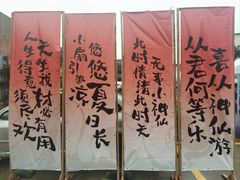 人生得意须尽欢
天生我材必有用
小扇引微凉
悠悠夏日长
此时情绪此时天
无事小神仙
从君何等乐
喜从神仙游